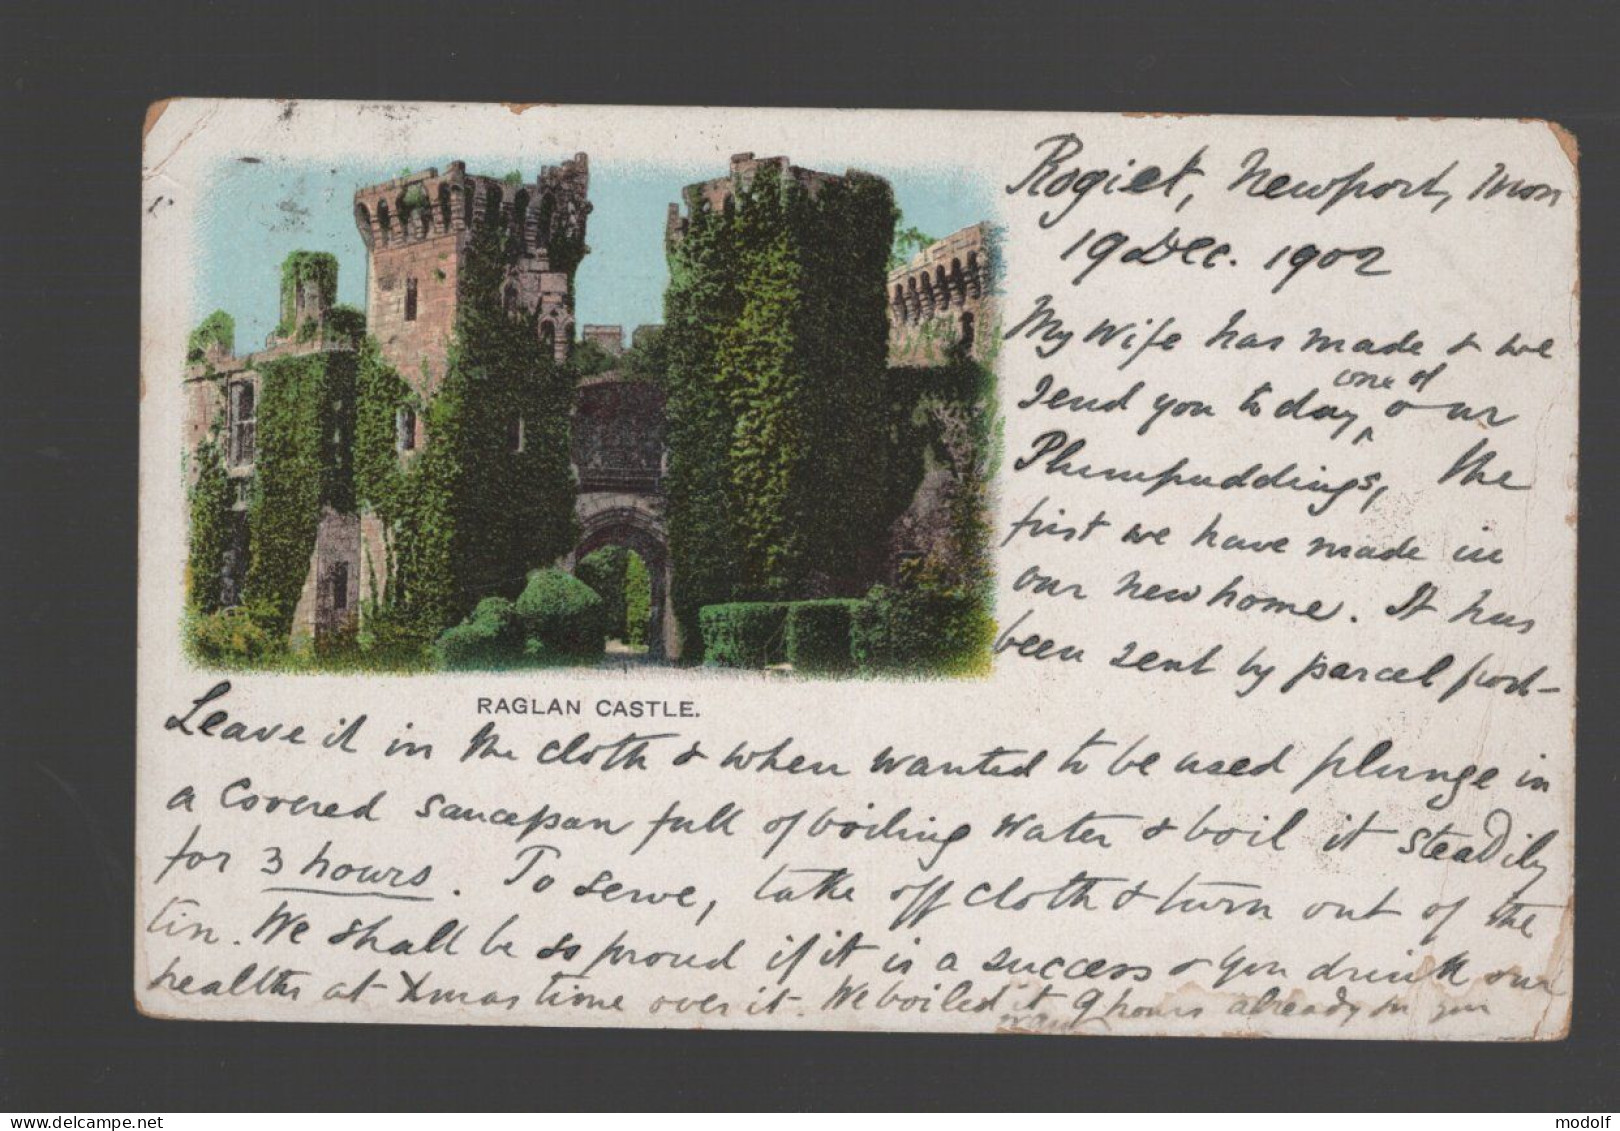 Rogiet, Newport, Mon
19 Dec. 1902
My Wife has made & we
send you to day one of our
Plumpuddings, the
first we have made in
our new home. It has
been sent by parcel post-
RAGLAN CASTLE.
Leave it in the cloth & when wanted to be used plunge in
a Covered saucepan full of boiling water & boil it steadily
for 3 hours. To serve, take off cloth & turn out of the
tin. We shall be so proud if it is a success & you drink our
healths at Xmas time over it. We boiled it 9 hours already for you
www.delcampe.net
modolf